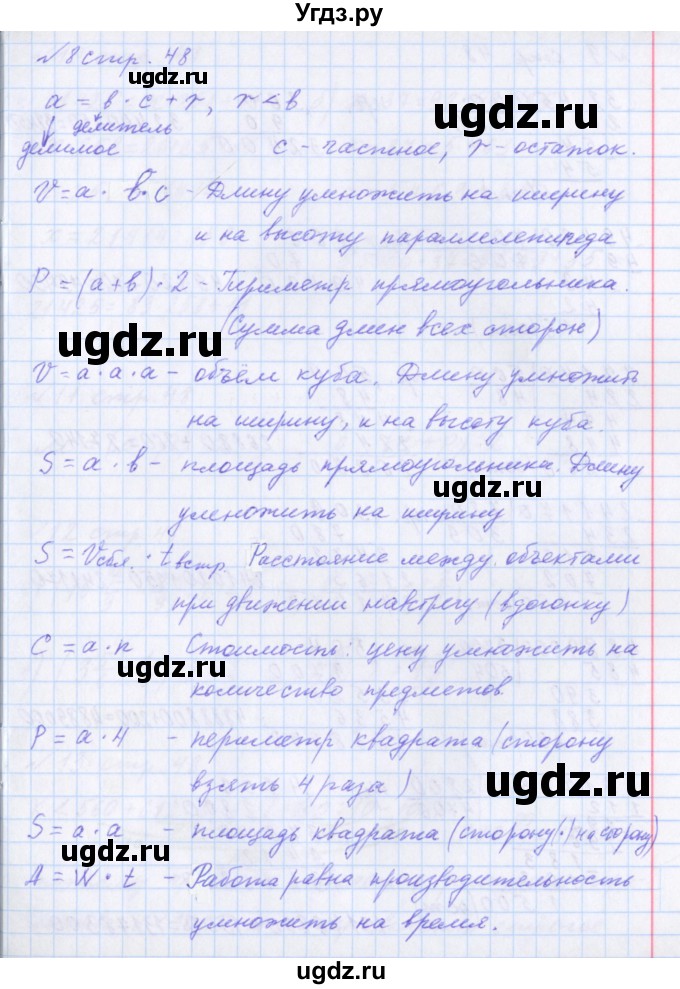 Угдз.ру
№8 стр. 48
ugdz.ru
ugdz.ru
a = в · c + r, r < в
делитель
делимое c - частное, r - остаток.
V = a · в · c - Длину умножить на ширину
и на высоту параллелепипеда
P = (a + в) · 2 - Периметр прямоугольника.
ugdz.ru
(Сумма длин всех сторон)
ugdz.ru
V = a · a · a - объём куба. Длину умножить
на ширину, и на высоту куба.
S = a · в - площадь прямоугольника. Длину
ugdz.ru
умножить на ширину
S = Vсбл. · tвстр. Расстояние между объектами
ugdz.ru
при движении навстречу (вдогонку)
C = a · n Стоимость: цену умножить на
ugdz.ru
количество предметов
P = a · 4 - периметр квадрата (сторону
ugdz.ru
взять 4 раза)
S = a · a - площадь квадрата (сторону (·) на сторону)
ugdz.ru
A = W · t - Работа равна производительность
ugdz.ru
умножить на время.
ugdz.ru